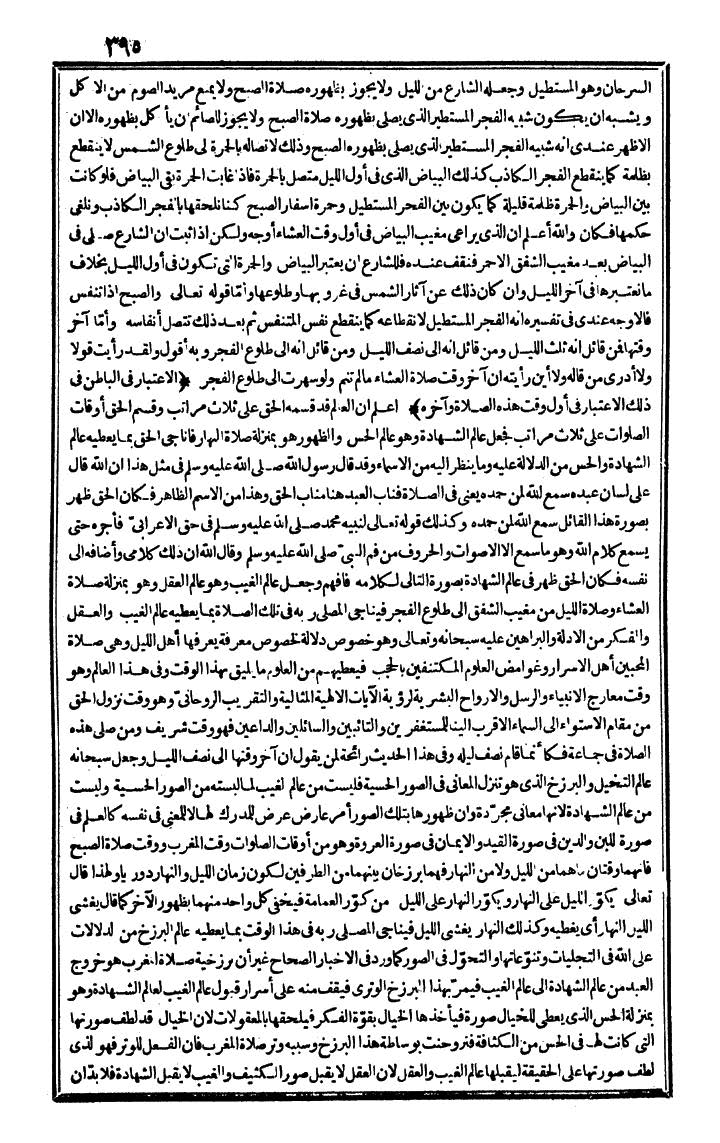 ٣٩٥
السرحان وهو المستطيل وجعله الشارع من الليل ولا يجوز بظهوره صلاة الصبح ولا يمنع مريد الصوم من الاكل
ويشبه ان يكون شبيه الفجر المستطير الذى يصلى بظهوره صلاة الصبح ولا يجوز للصائم ان يأكل بظهوره الا ان
الاظهر عندى انه شبيه الفجر المستطير الذى يصلى بظهوره الصبح وذلك لاتصاله بالحمرة الى طلوع الشمس لا ينقطع
بظلمة كما ينقطع الفجر الكاذب كذلك البياض الذى فى أول الليل متصل بالحمرة فاذا غابت الحمرة بقى البياض فلو كانت
بين البياض والحمرة ظلمة قليلة كما يكون بين الفجر المستطيل وحمرة اسفار الصبح كنا نلحقها بالفجر الكاذب ونلغى
حكمها فكان والله أعلم ان الذى يراعى مغيب البياض فى أول وقت العشاء أوجه ولكن اذا ثبت ان الشارع صلى فى
البياض بعد مغيب الشفق الاحمر فنقف عنده فللشارع ان يعتبر البياض والحمرة التى تكون فى أول الليل بخلاف
ما نعتبرها فى آخر الليل وان كان ذلك عن آثار الشمس فى غروبها وطلوعها وأما قوله تعالى والصبح اذا تنفس
فالاوجه عندى فى تفسيره انه الفجر المستطيل لانقطاعه كما ينقطع نفس المتنفس ثم بعد ذلك تتصل أنفاسه وأما آخر
وقتها فمن قائل انه ثلث الليل ومن قائل انه الى نصف الليل ومن قائل انه الى طلوع الفجر وبه أقول ولقد رأيت قولا
ولا أدرى من قاله ولا أين رأيته ان آخر وقت صلاة العشاء ما لم تنم ولو سهرت الى طلوع الفجر ﴿الاعتبار فى الباطن فى
ذلك الاعتبار فى أول وقت هذه الصلاة وآخره﴾ اعلم ان العالم قد قسمه الحق على ثلاث مراتب وقسم الحق أوقات
الصلوات على ثلاث مراتب فجعل عالم الشهادة وهو عالم الحس والظهور وهو بمنزلة صلاة النهار فاناجى الحق بما يعطيه عالم
الشهادة والحس من الدلالة عليه وما ينظر اليه من الاسماء وقد قال رسول الله صلى الله عليه وسلم فى مثل هذا ان الله قال
على لسان عبده سمع الله لمن حمده يعنى فى الصلاة فناب العبد هنا مناب الحق وهذا من الاسم الظاهر فكان الحق ظهر
بصورة هذا القائل سمع الله لمن حمده وكذلك قوله تعالى لنبيه محمد صلى الله عليه وسلم فى حق الاعرابى فأجره حتى
يسمع كلام الله وهو ما سمع الا الاصوات والحروف من فم النبى صلى الله عليه وسلم وقال الله ان ذلك كلامى وأضافه الى
نفسه فكان الحق ظهر فى عالم الشهادة بصورة التالى لكلامه فافهم وجعل عالم الغيب وهو عالم العقل وهو بمنزلة صلاة
العشاء وصلاة الليل من مغيب الشفق الى طلوع الفجر فيناجى المصلى ربه فى تلك الصلاة بما يعطيه عالم الغيب والعقل
والفكر من الادلة والبراهين عليه سبحانه وتعالى وهو خصوص دلالة لخصوص معرفة يعرفها أهل الليل وهى صلاة
المحبين أهل الاسرار وغوامض العلوم المكتنفين بالحجب فيعطيهم من العلوم ما يليق بهذا الوقت وفى هذا العالم وهو
وقت معارج الانبياء والرسل والارواح البشرية لرؤية الآيات الالهية المثالية والتقريب الروحانى وهو وقت نزول الحق
من مقام الاستواء الى السماء الاقرب الينا للمستغفرين والتائبين والسائلين والداعين فهو وقت شريف ومن صلى هذه
الصلاة فى جماعة فكأنما قام نصف ليله وفى هذا الحديث رائحة لمن يقول ان آخر وقتها الى نصف الليل وجعل سبحانه
عالم التخيل والبرزخ الذى هو تنزل المعانى فى الصور الحسية فليست من عالم الغيب لما لبسته من الصور الحسية وليست
من عالم الشهادة لانها معانى مجردة وان ظهورها بتلك الصور أمر عارض عرض للمدرك لها لا للمعنى فى نفسه كالعلم فى
صورة اللبن والدين فى صورة القيد والايمان فى صورة العروة وهو من أوقات الصلوات وقت المغرب ووقت صلاة الصبح
فانهما وقتان ما هما من الليل ولا من النهار فهما برزخان بينهما من الطرفين لكون زمان الليل والنهار دوريا ولهذا قال
تعالى يكور الليل على النهار ويكور النهار على الليل من كور العمامة فيخفى كل واحد منهما بظهور الآخر كما قال يغشى
الليل النهار أى يغطيه وكذلك النهار يغشى الليل فيناجى المصلى ربه فى هذا الوقت بما يعطيه عالم البرزخ من الدلالات
على الله فى التجليات وتنوعاتها والتحول فى الصور كما ورد فى الاخبار الصحاح غير أن برزخية صلاة المغرب هو خروج
العبد من عالم الشهادة الى عالم الغيب فيمر بهذا البرزخ الوترى فيقف منه على أسرار قبول عالم الغيب لعالم الشهادة وهو
بمنزلة الحس الذى يعطى للخيال صورة فيأخذها الخيال بقوة الفكر فيلحقها بالمعقولات لان الخيال قد لطف صورتها
التى كانت لها فى الحس من الكثافة فتروحنت بوساطة هذا البرزخ وسببه وتر صلاة المغرب فان الفعل للوتر فهو الذى
لطف صورتها على الحقيقة ليقبلها عالم الغيب والعقل لان العقل لا يقبل صور الكثيف والغيب لا يقبل الشهادة فلا بد ان